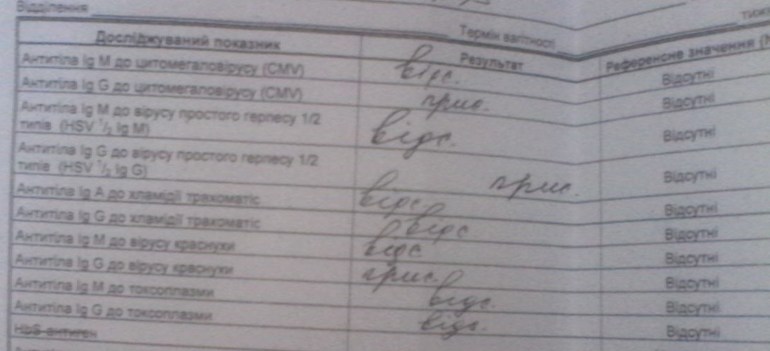 Відділення
Термін вагітності
тиж
Досліджуваний показник Результат Референсне значення (N
Антитіла Ig M до цитомегаловірусу (CMV) відс. Відсутні
Антитіла Ig G до цитомегаловірусу (CMV) прис. Відсутні
Антитіла Ig M до вірусу простого герпесу 1/2 типів (HSV ½ Ig M) відс. Відсутні
Антитіла Ig G до вірусу простого герпесу 1/2 типів (HSV ½ Ig G) прис. Відсутні
Антитіла Ig A до хламідії трахоматіс відс. Відсутні
Антитіла Ig G до хламідії трахоматіс відс Відсутні
Антитіла Ig M до вірусу краснухи відс Відсутні
Антитіла Ig G до вірусу краснухи прис. Відсутні
Антитіла Ig M до токсоплазми відс. Відсутні
Антитіла Ig G до токсоплазми відс. Відсутні
HbS-антиген